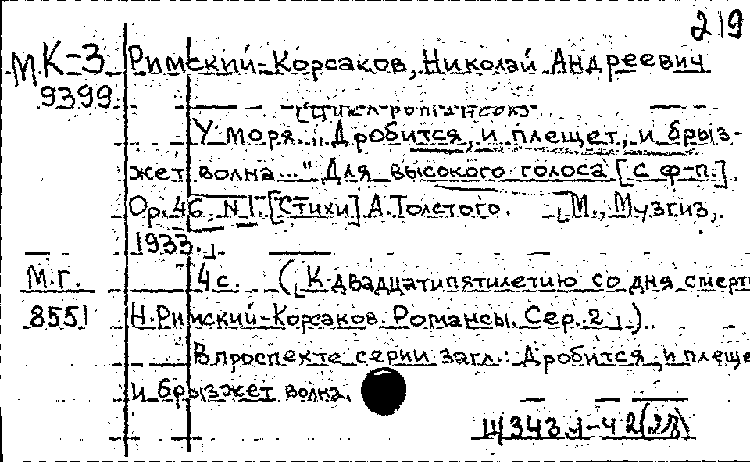 219
М.К-3 Римский-Корсаков, Николай Андреевич
9399
[Цикл романсов]
У моря. „Дробится, и плещет, и брыз-
жет волна..." Для высокого голоса [с ф-п.].
Ор. 46 №1. [Стихи] А. Толстого. М., Музгиз,
1933.
М.г. 4 с. (К двадцатипятилетию со дня смерти
8551 Н. Римский-Корсаков. Романсы. Сер. 2).
В проспекте серии загл.: Дробится, и плеще
и брызжет волна.